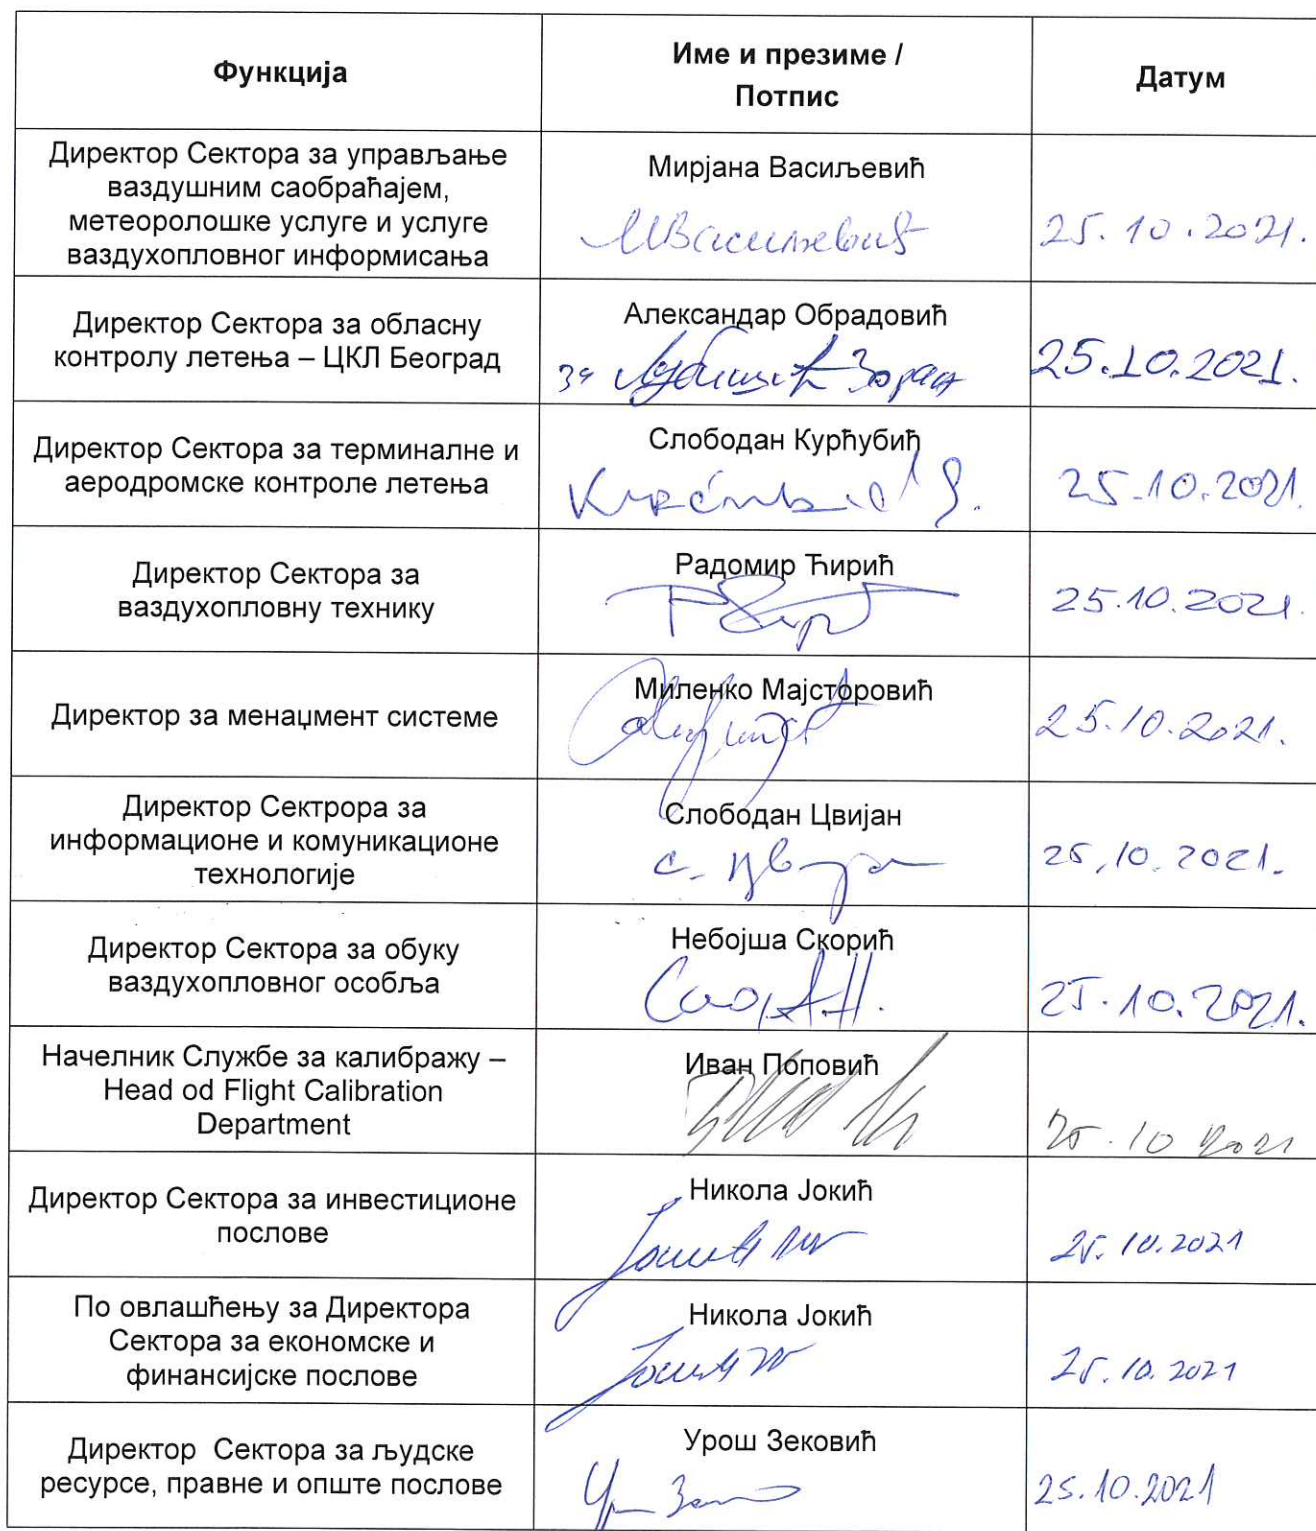 Функција
Име и презиме /
Потпис
Датум
Директор Сектора за управљање
ваздушним саобраћајем,
метеоролошке услуге и услуге
ваздухопловног информисања
Мирјана Васиљевић
МВасиљевић
25.10.2021.
Директор Сектора за обласну
контролу летења – ЦКЛ Београд
Александар Обрадовић
за Зоран
25.10.2021.
Директор Сектора за терминалне и
аеродромске контроле летења
Слободан Курћубић
25.10.2021.
Директор Сектора за
ваздухопловну технику
Радомир Ћирић
25.10.2021.
Директор за менаџмент системе
Миленко Мајсторовић
25.10.2021.
Директор Сектрора за
информационе и комуникационе
технологије
Слободан Цвијан
25.10.2021.
Директор Сектора за обуку
ваздухопловног особља
Небојша Скорић
25.10.2021.
Начелник Службе за калибражу –
Head od Flight Calibration
Department
Иван Поповић
25.10 2021
Директор Сектора за инвестиционе
послове
Никола Јокић
25.10.2021
По овлашћењу за Директора
Сектора за економске и
финансијске послове
Никола Јокић
25.10.2021
Директор Сектора за људске
ресурсе, правне и опште послове
Урош Зековић
25.10.2021